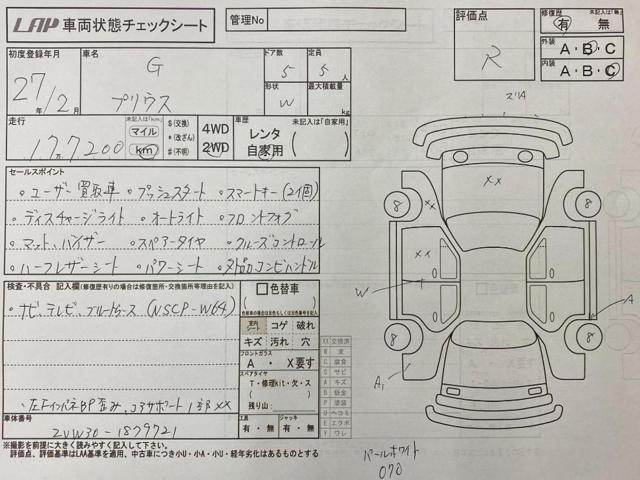 LAP 車両状態チェックシート
管理No
評価点
R
修復歴 未記入は「無」
有・無
外装
A・B・C
内装
A・B・C
初度登録年月
27年/2月
車名
G
プリウス
ドア数
5
定員
5人
形状
W
最大積載量
kg
走行
17万7200
未記入は「km」
マイル
km
$(交換)
*(改ざん)
#(不明)
4WD
2WD
車歴 未記入は「自家用」
レンタ
自家用
( )
セールスポイント
・ユーザー買取車 ・プッシュスタート ・スマートキー(2個)
・ディスチャージライト ・オートライト ・フロントフォグ
・マット、バイザー ・スペアータイヤ ・クルーズコントロール
・ハーフレザーシート ・パワーシート ・外品コンビハンドル
検査・不具合 記入欄(修復歴有りの場合は修復箇所・交換箇所等理由を記入)
・ナビ、テレビ、ブルートゥース(NSCP-W64)
・左Fインパネ BP歪み、コアサポート 1部 XX
色替車
( )
コゲ 破れ
キズ 汚れ 穴
フロントガラス
A ・ X要す
スペアタイヤ
T・修理kit・欠・ス
( )
残り山:
工具
有・無
ジャッキ
有・無
車体番号
ZVW30-1879721
※撮影を前提に大きく読みやすく記入して下さい。
評価点、評価基準はLAA基準を適用、中古車につき小U・小A・小U・経年劣化はあるものとする
XX 交換済
W 波
C 腐食
S サビ
A キズ
B 鈑金
P 塗装
U ヘコミ
E エクボ
Y ワレ
XX
8
XX
8
XX
W
A
8
8
A1
パールホワイト
070